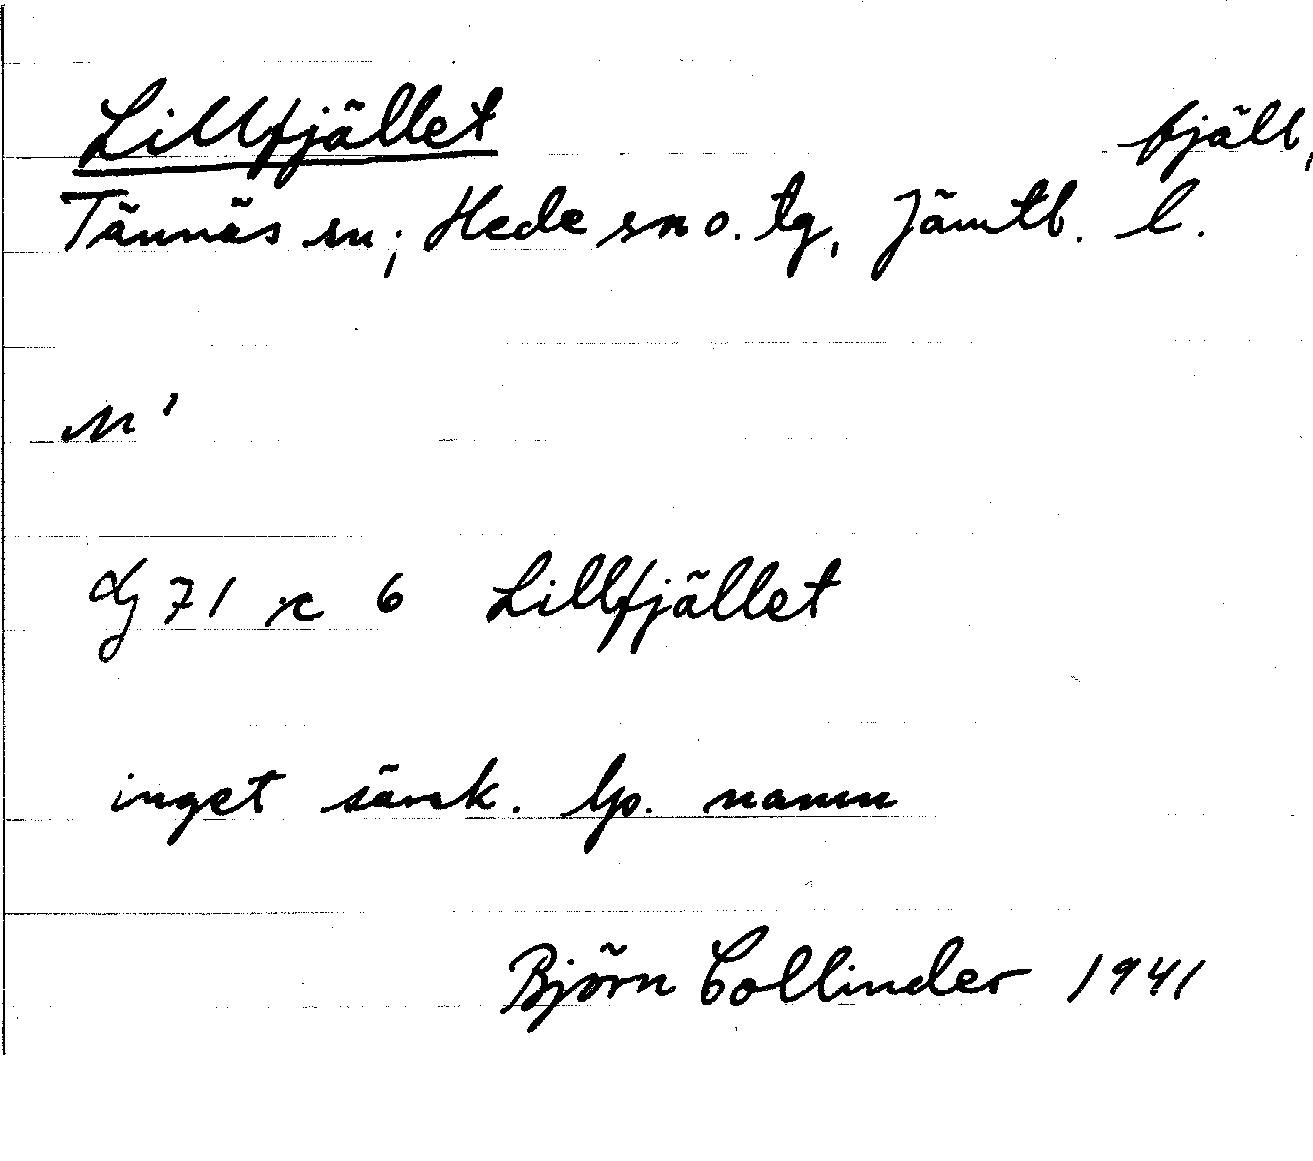 Lillfjället fjäll,
Tännäs sn; Hede sn o. tg, Jämtl. l.
M'
dj 71 x 6 Lillfjället
inget särsk. lp. namn
Björn Collinder 1941